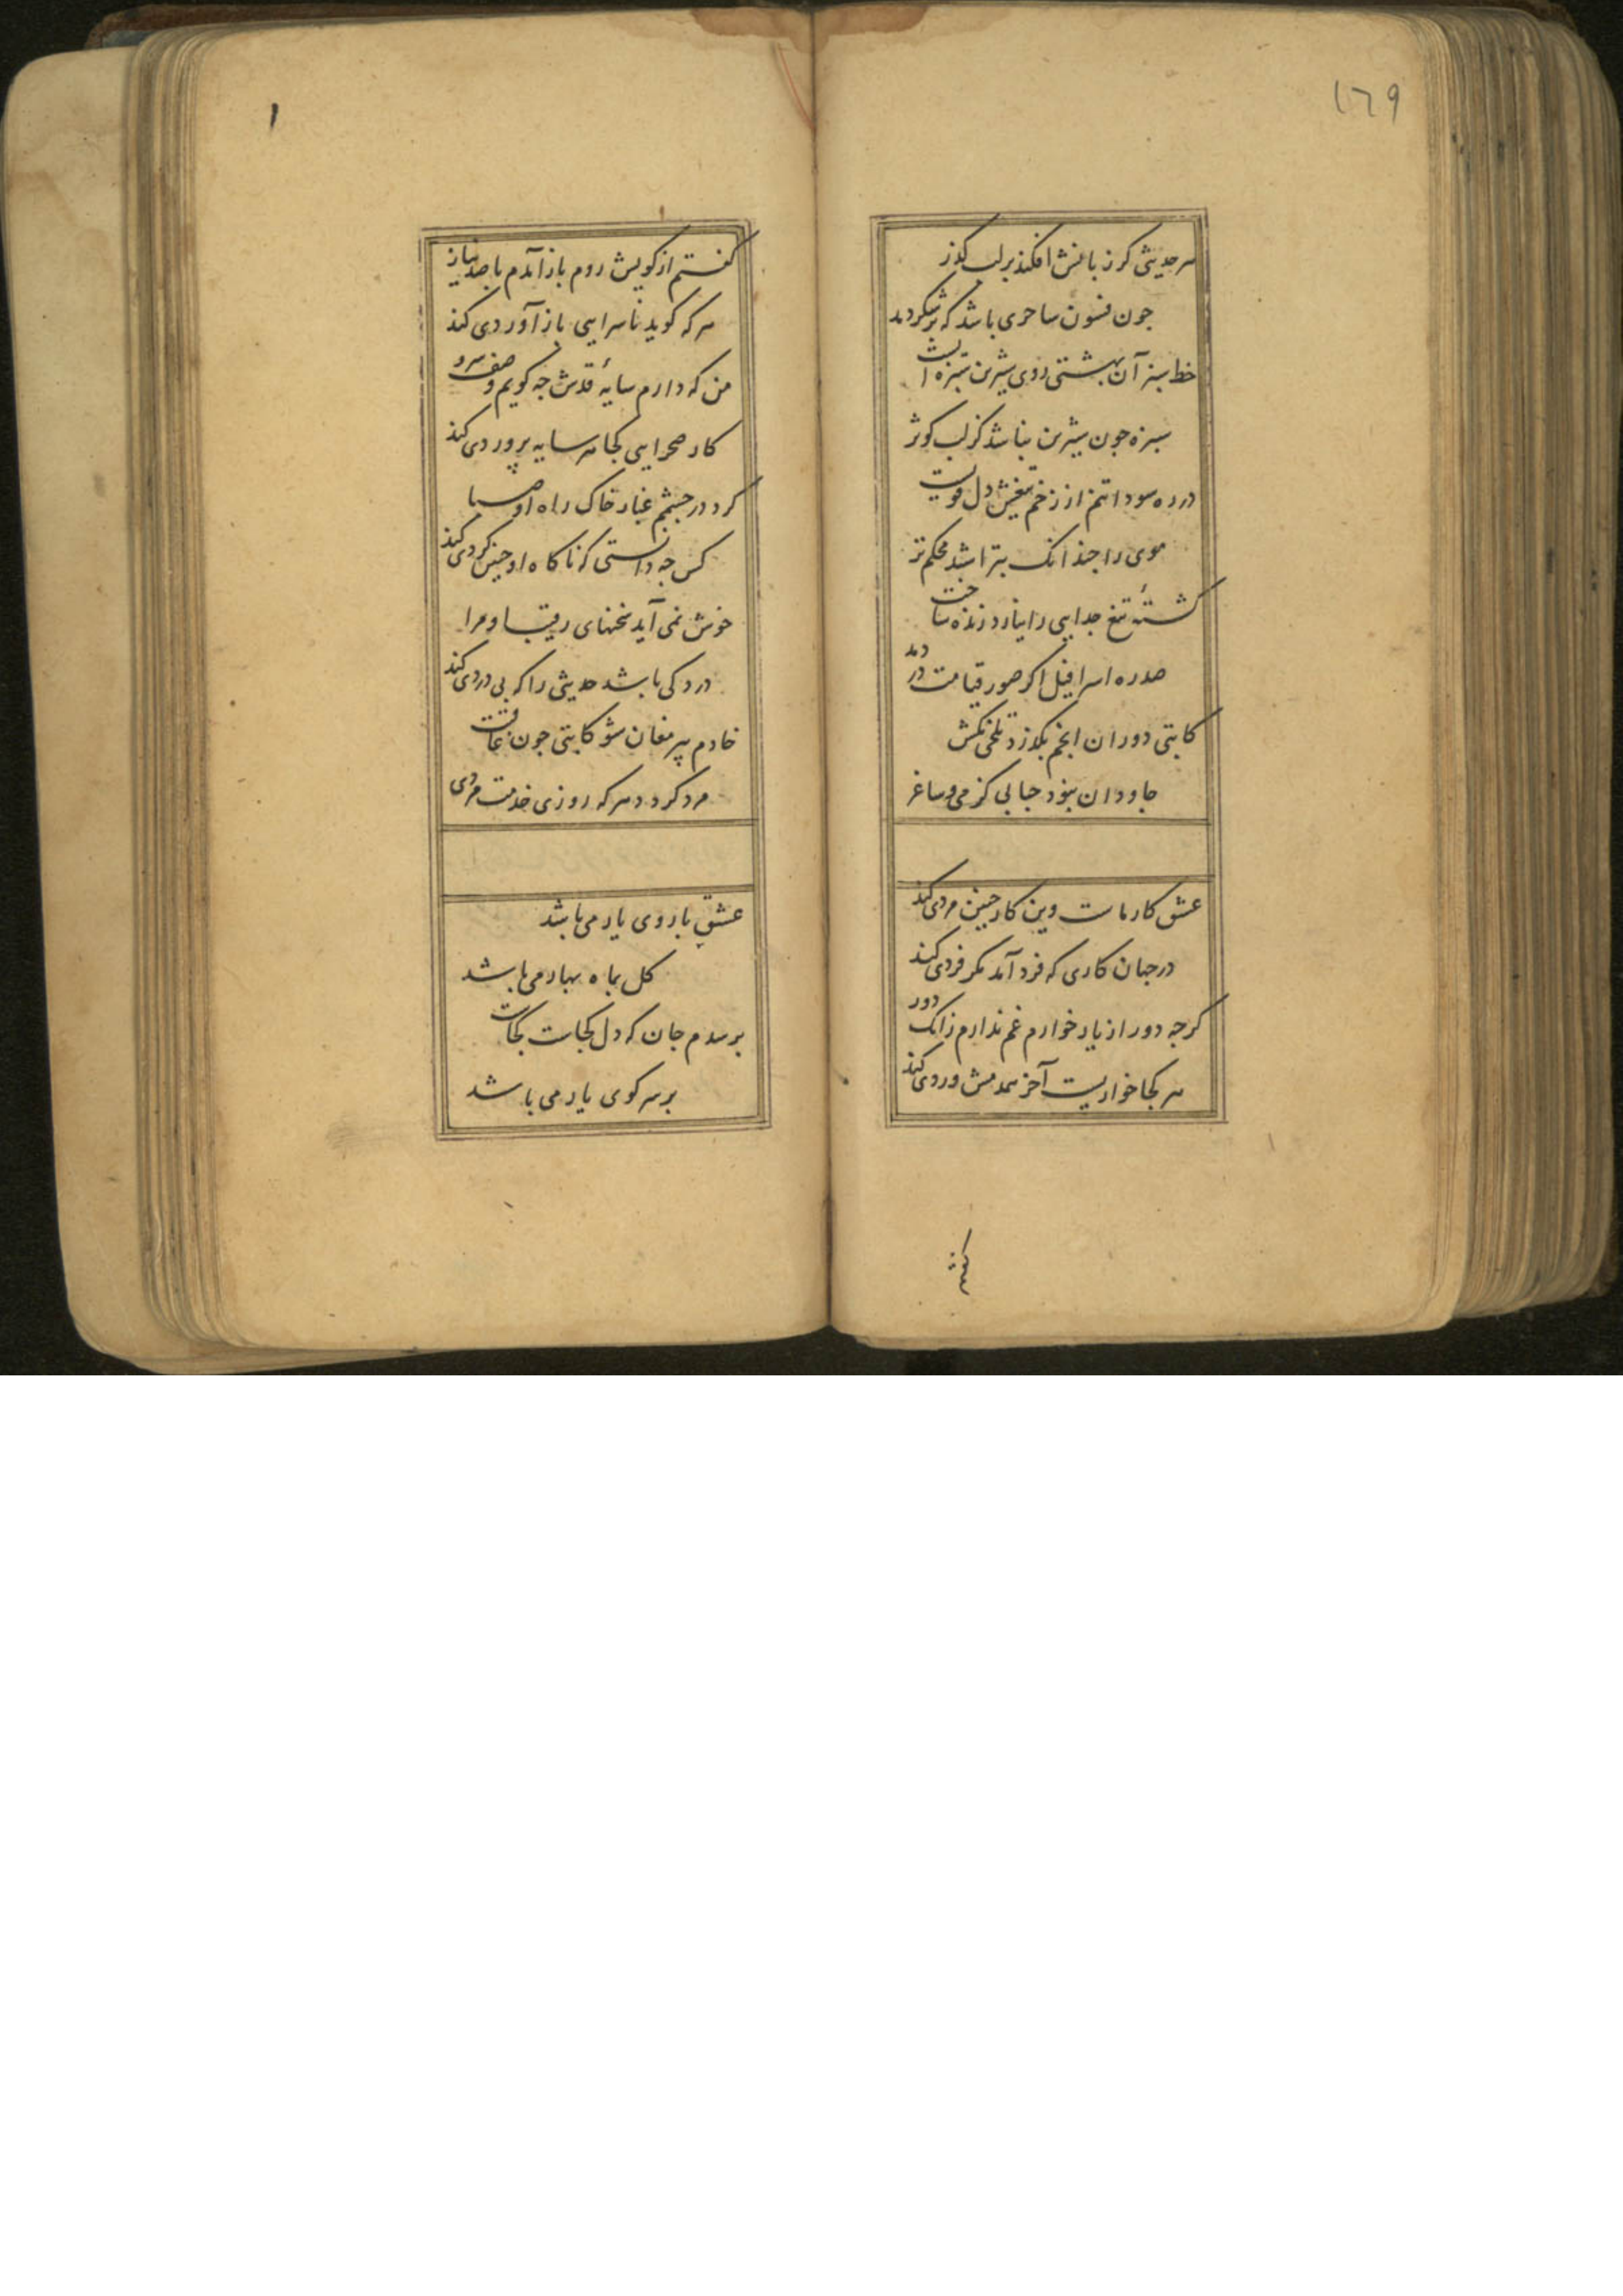 ١٦٩
هر حدیثی کز زبانش افکند بر لب گذر
جون فسون ساحری باشد که بر شکر دمد
خط سبز آن بهشتی روی شیرین سبزه است
سبزه جون شیرین نباشد کز لب کوثر دمد
در ره سودا تنم از زخم تیغش دل قویست
موی را جندانک بتراشند محکم‌تر دمد
کشتهٔ تیغ جدایی را نیارد زنده ساخت
صد ره اسرافیل اگر صور قیامت در دمد
کاتبی دوران انجم بگذرد تلخی مکش
جاودان نبود حبابی کز می و ساغر دمد
عشق کار ماست وین کار جنین مردی کند
در جهان کاری که فرد آمد مگر فردی کند
کرجه دور از یار خوارم غم ندارم زانک دور
هر کجا خواریست آخر همدمش وردی کند
کفتم
۱
کفتم از کویش روم باز آمدم با صد نیاز
هر که کوید ناسزایی باز آوردی کند
من که دارم سایهٔ قدش جه کویم وصف سرو
کار صحرایی کجا هر سایه پروردی کند
کرد در جشمم غبار خاک راه او صبا
کس جه دانستی که ناکاه او جنین کردی کند
خوش نمی آید سخنهای رقیب او مرا
درد کی باشد حدیثی را که بی دردی کند
خادم پیر مغان شو کاتبی جون عاقبت
مرد کردد هر که روزی خدمت مردی کند
عشق با روی یار می باشد
کل بماه بهار می باشد
برسدم جان که دل کجاست کجاست
بر سر کوی یار می باشد